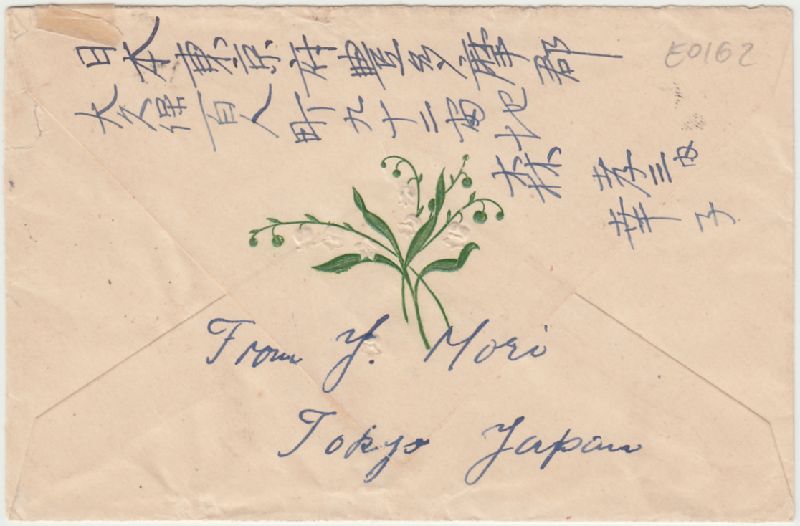 日本東京府豐多摩郡
大久保百人町九十二番地
森 孝三内
華子
E0162
From Y. Mori
Tokyo Japan